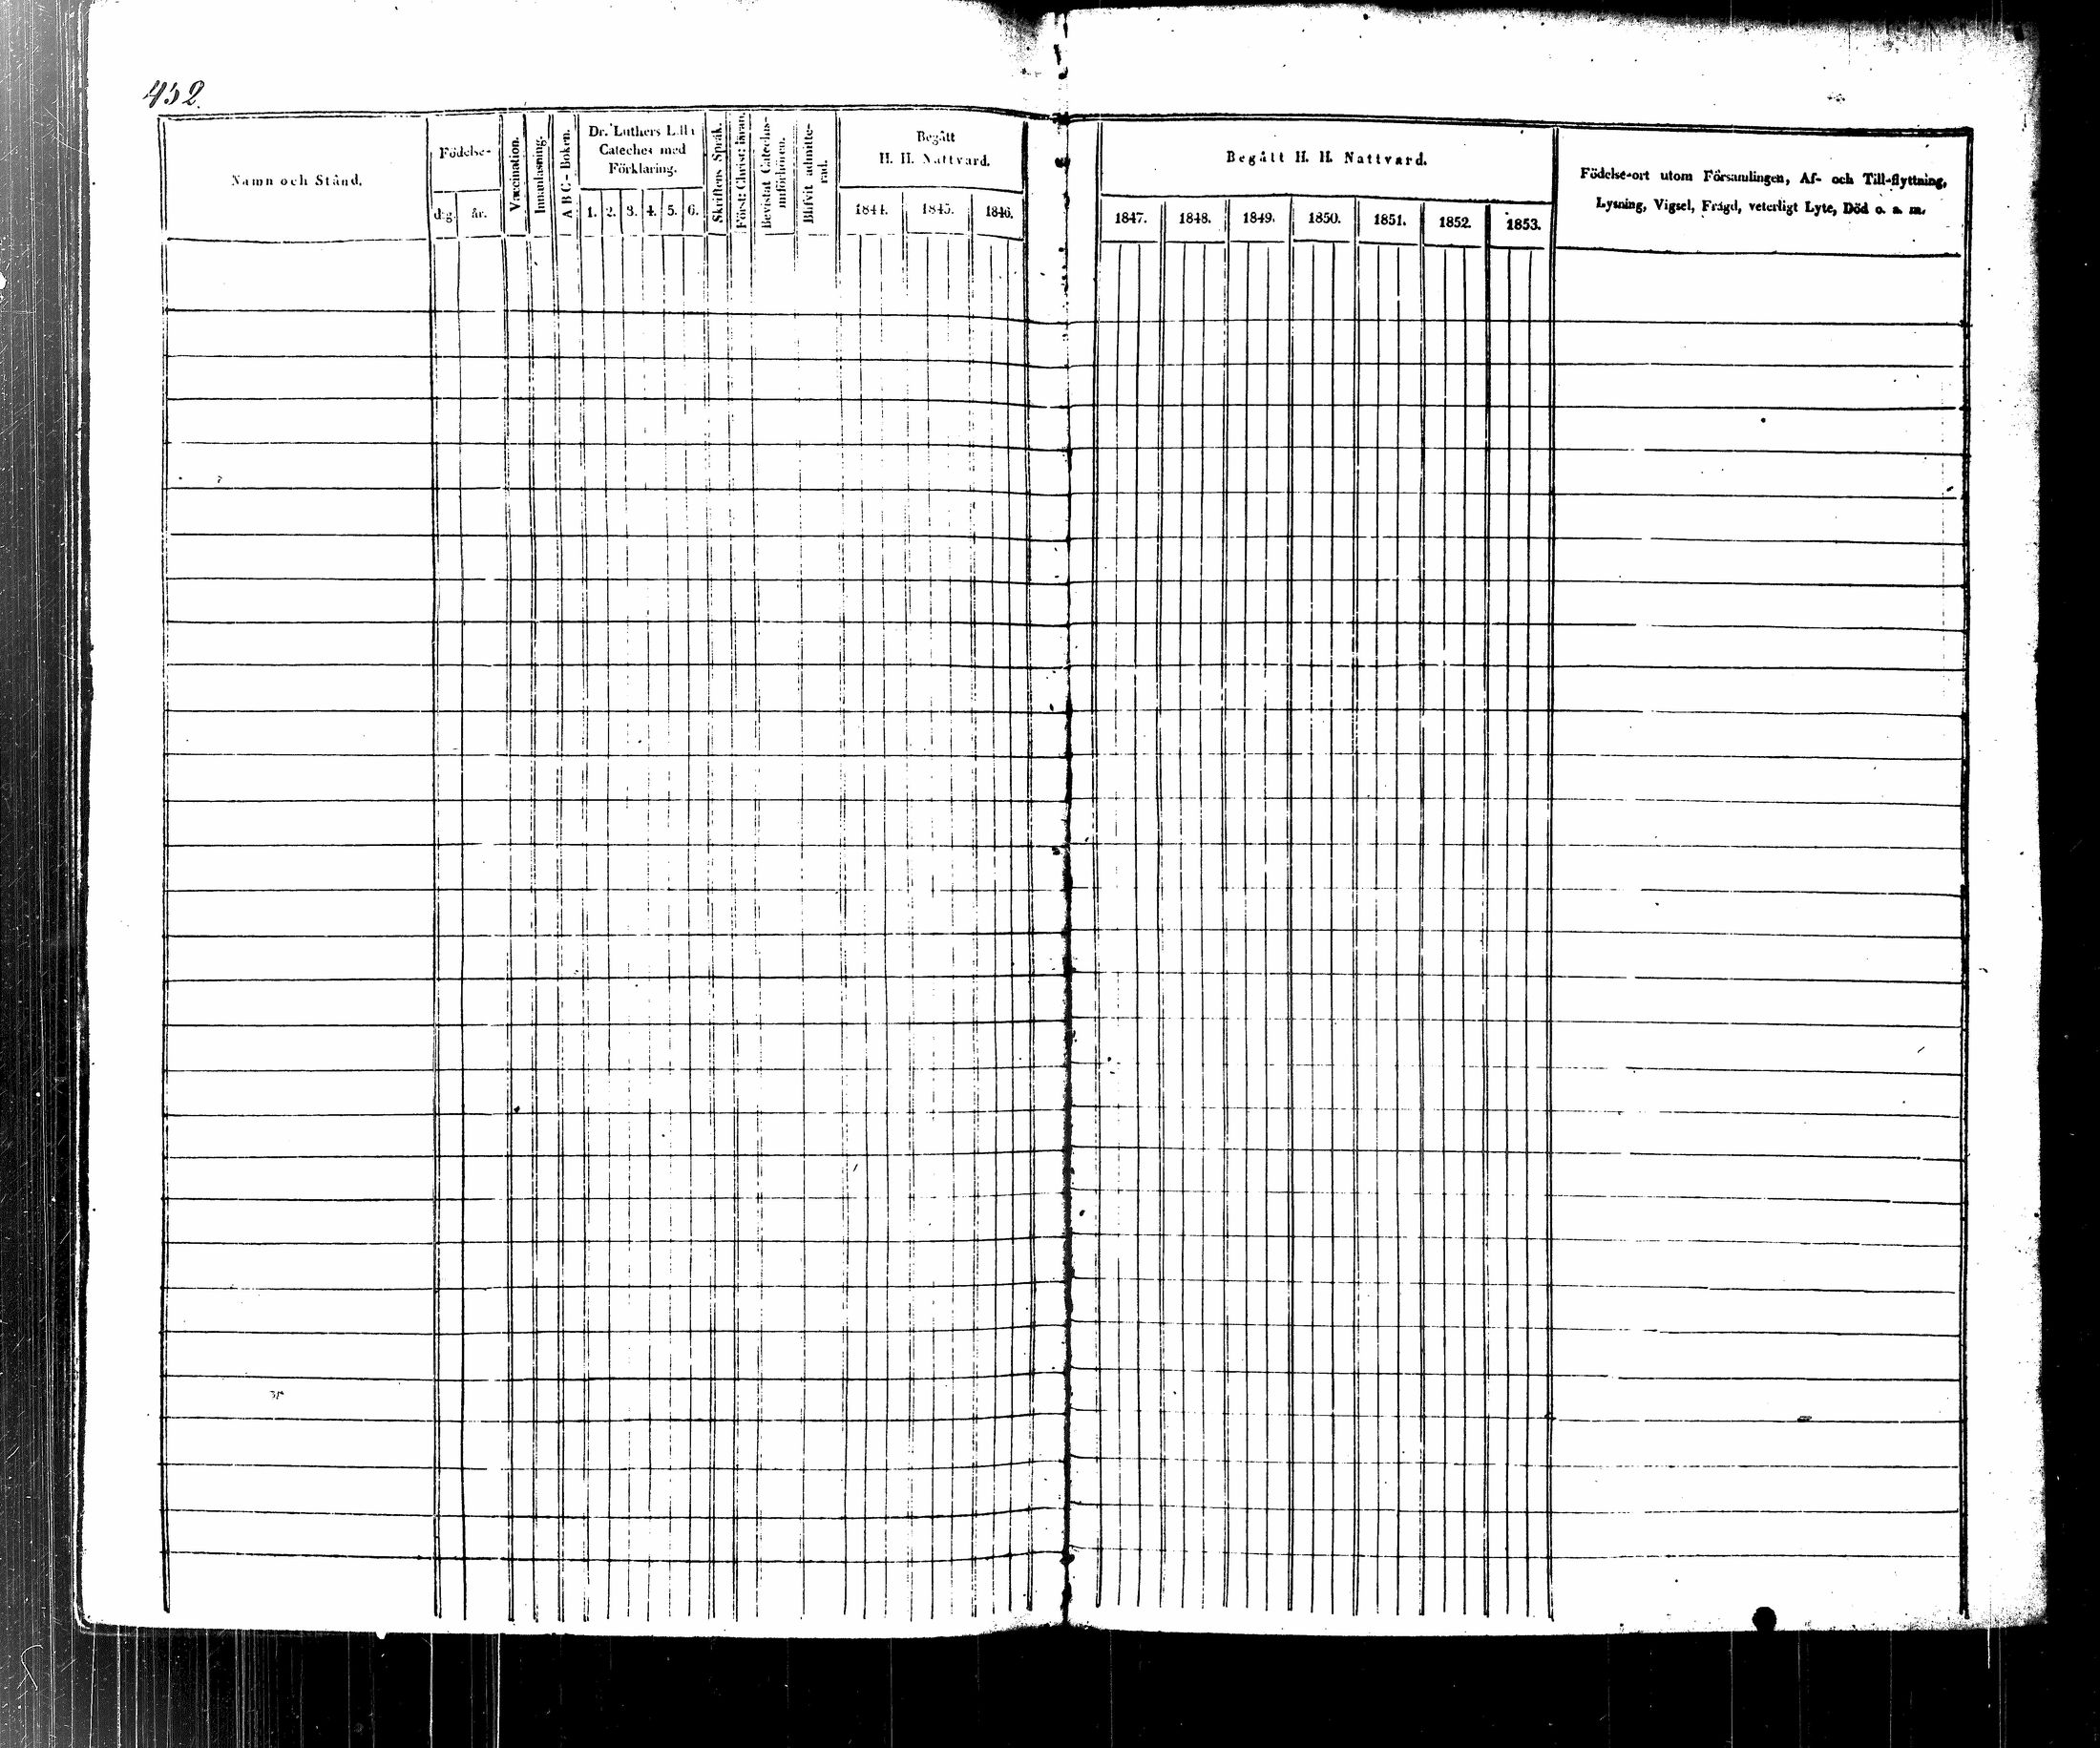 452.
Namn och Stånd.
Födelse-
dag.
år.
Vaccination.
Innanläsning.
A B C - Boken.
Dr. Luthers Lilla
Cateches med
Förklaring.
1. 2. 3. 4. 5. 6.
Skriftens Språk.
Först: Christ: läran.
Bevistat Catechis-
miförhören.
Blifvit admitte-
rad.
Begått
H. H. Nattvard.
1844. 1845. 1846.
Begått H. H. Nattvard.
1847. 1848. 1849. 1850. 1851. 1852. 1853.
Födelse-ort utom Församlingen, Af- och Till-flyttning,
Lysning, Vigsel, Frägd, veterligt Lyte, Död o. s. m.